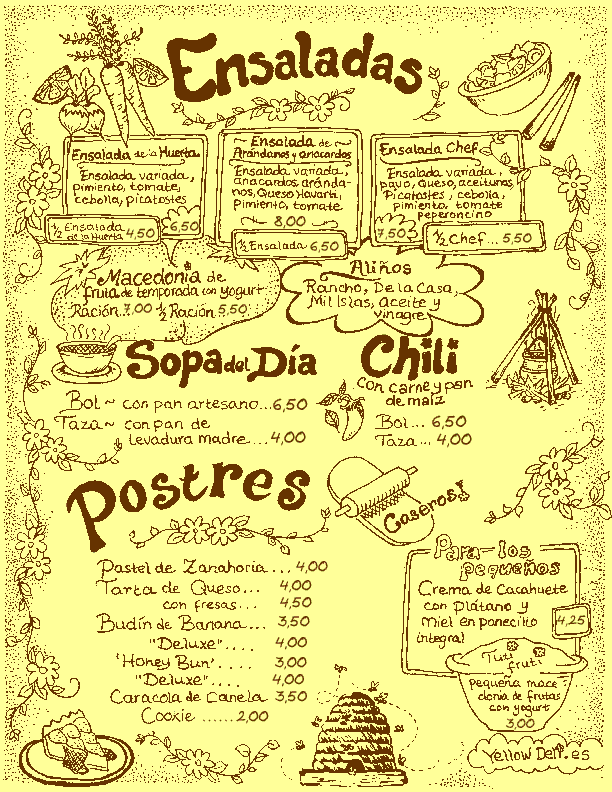 Ensaladas
Ensalada de la Huerta
Ensalada variada,
pimiento, tomate,
cebolla, picatostes
6,50
½ Ensalada
de la Huerta 4,50
~ Ensalada de ~
Arándanos y anacardos
Ensalada variada,
anacardos, aránda-
nos, Queso Havarti,
Pimiento, tomate.
8,00
½ Ensalada 6,50
Ensalada Chef
Ensalada variada,
pavo, queso, aceitunas,
Picatostes, cebolla,
pimiento, tomate
peperoncino
7,50
½ Chef... 5,50
Macedonia de
fruta de temporada con yogurt
Ración 7,00 ½ Ración 5,50
Aliños
Rancho, De La Casa,
Mil Islas, Aceite y
vinagre
Sopa del Día
Bol ~ con pan artesano...6,50
Taza ~ con pan de
levadura madre....4,00
Chili
Con carne y pan
de maíz
Bol... 6,50
Taza... 4,00
Postres
Caseros!
Pastel de Zanahoria... 4,00
Tarta de Queso... 4,00
con fresas... 4,50
Budín de Banana... 3,50
"Deluxe".... 4,00
'Honey Bun'.... 3,00
"Deluxe".... 4,00
Caracola de Canela 3,50
Cookie ......2,00
Para los
pequeños
Crema de Cacahuete
con plátano y
miel en panecillo
integral
4,25
Tuti
fruti
pequeña mace-
donia de frutas
con yogurt
3,00
Yellow Deli.es